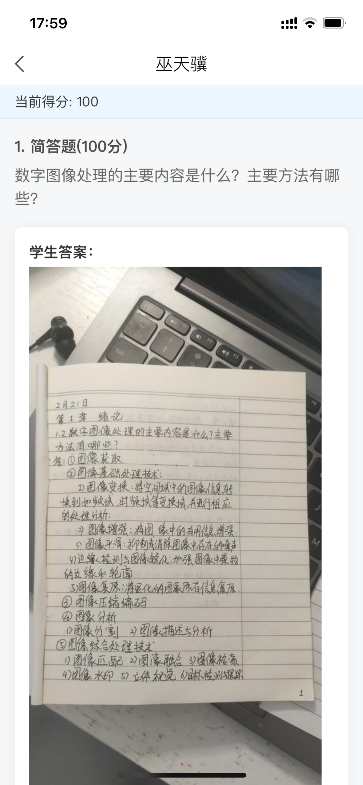 17:59
巫天骥
当前得分: 100
1. 简答题(100分)
数字图像处理的主要内容是什么？主要方法有哪
些？
学生答案：
2月21日
第1章 绪论
1.2 数字图像处理的主要内容是什么？主要
方法有哪些？
答：①图像获取
②图像基础处理技术：
1)图像变换：将空间域中的图像信息转
换到如频域、时频域等变换域，并进行相应
的处理分析；
2) 图像增强：将图像中的有用信息增强
3) 图像平滑：抑制或消除图像中存在的噪声
4)边缘检测与图像锐化：加强图像中景物
的边缘和轮廓
5)图像复原：
③图像压缩编码
④图像分析
1)图像分割 2)图像描述与分析
⑤图像综合处理技术
1)图像匹配 2)图像融合 3)图像检索
4)图像水印 5)立体视觉 6)目标检测与跟踪
1